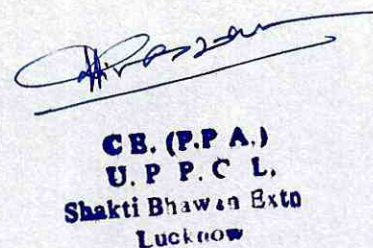 C E. (P.P A.)
U. P P. C L.
Shakti Bhawan Extn
Lucknow